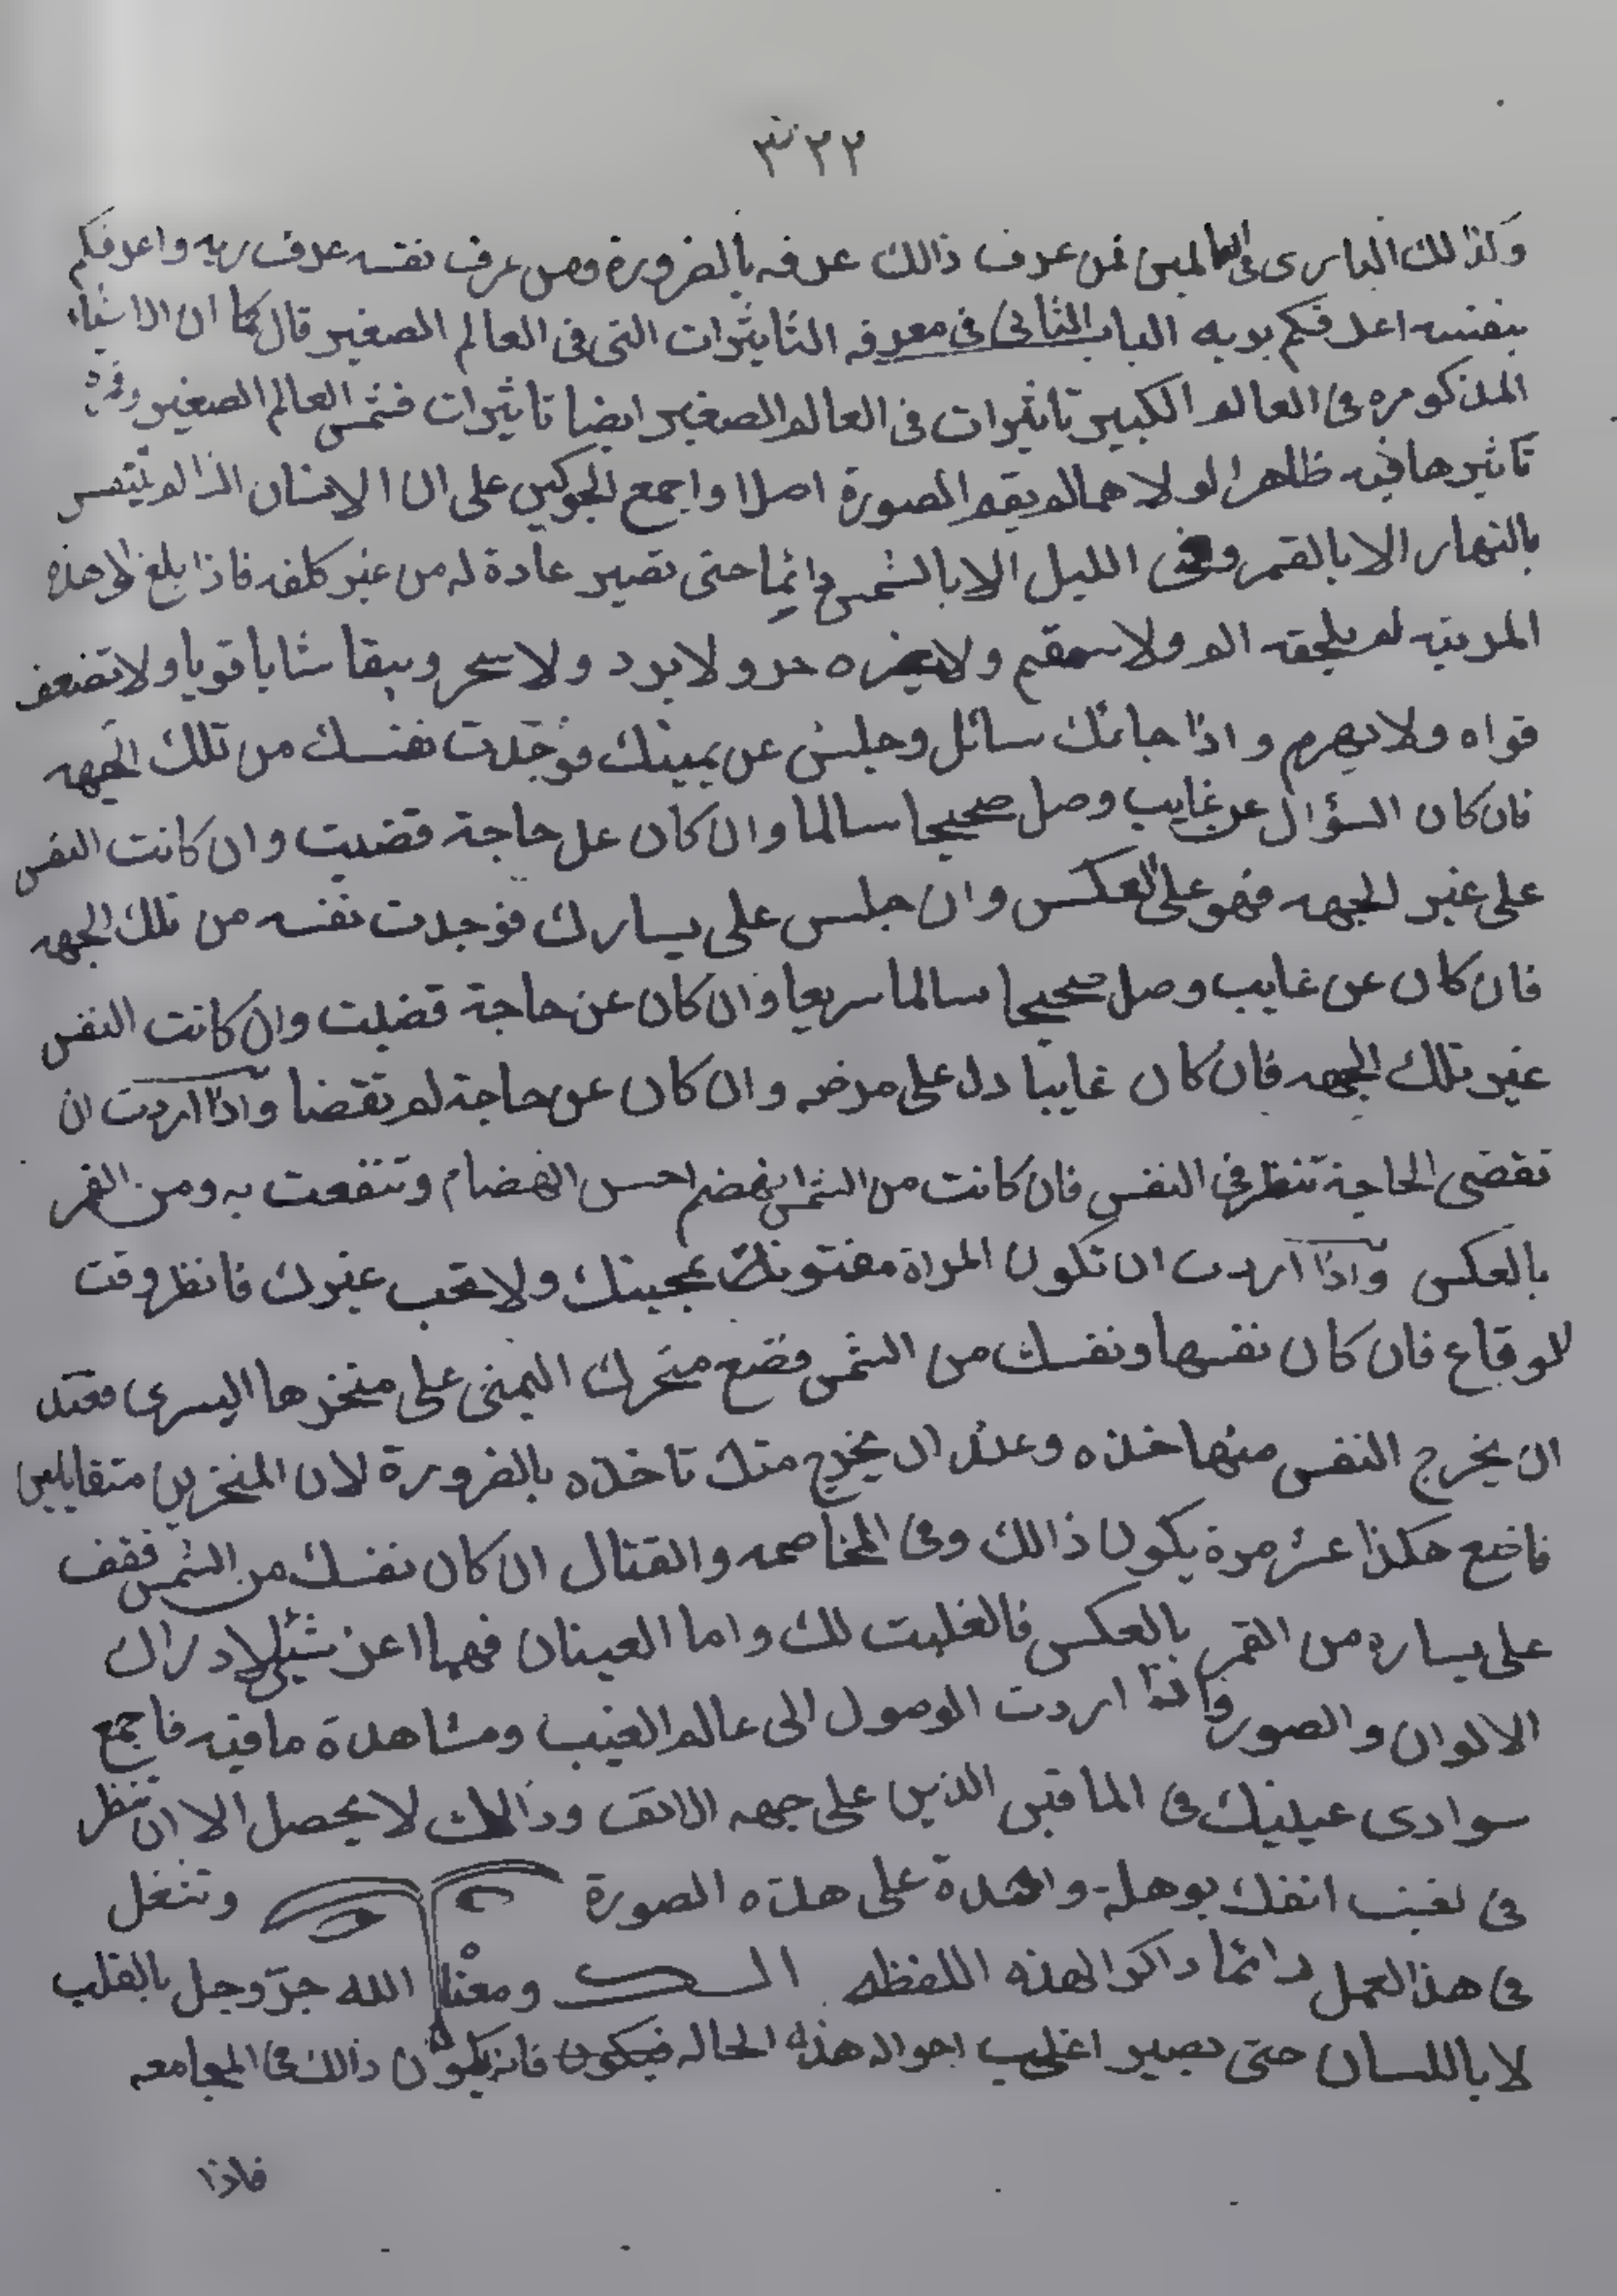 ٣٢٢
وكذالك البارى فى العالمين فمن عرف ذالك عرفه بالضرورة ومن عرف نفسه عرف ربه واعرفكم
بنفسه اعرفكم بربه الباب الثانى فى معرفه التاثيرات التى فى العالم الصغير قال كما ان الاشياء
المذكوره فى العالم الكبير تاثيرات فى العالم الصغير ايضا تاثيرات فشمس العالم الصغير وقمره
تاثيرها فيه ظاهرا لولاهما لم يقم الصورة اصلا واجمع الجوكين على ان الانسان اذا لم يتنفس
بالنهار الا بالقمر وفى الليل الا بالشمس دائما حتى تصير عادة له من غير كلفه فاذا بلغ هذه
المرتبه لم يلحقه الم ولا سقم ولا يضره حر ولا برد ولا سحر ويبقا شابا قويا ولا تضعف
قواه ولا يهرم واذا جائك سائل وجلس عن يمينك فوجدت نفسك من تلك الجهه
فان كان السؤال عن غايب وصل صحيحا سالما وان كان عل حاجة قضيت وان كانت النفس
على غير الجهه فهو على العكس وان جلس على يسارك فوجدت نفسه من تلك الجهه
فان كان عن غايب وصل صحيحا سالما سريعا وان كان عن حاجة قضيت وان كانت النفس
غير تلك الجهه فان كان غايبا دل على مرضه وان كان عن حاجة لم تقضا واذا اردت ان
تقضى الحاجة تنظر فى النفس فان كانت من الشمس انهضم احسن انهضام وتنفعت به ومن القمر
بالعكس واذا اردت ان تكون المراة مفتونة بمحبتك ولا تحب غيرك فانظر وقت
لوقاع فان كان نفسها ونفسك من الشمس فضع منخرك اليمنى على منخرها اليسرى فعند
ان يخرج النفس منها خذه وعند ان يخرج منك تاخذه بالضرورة لان المنخرين متقابلين
فاضع هكذا عشر مرة يكون ذالك وفى المخاصمه والقتال ان كان نفسك من الشمس فقف
على يساره من القمر بالعكس فالغلبت لك واما العينان فهما اعز شئ لادراك
الالوان والصور واذا اردت الوصول الى عالم الغيب ومشاهدة ما فيه فاجمع
سوادى عينيك فى الماقين الذين على جهه الانف وذالك لا يحصل الا ان تنظر
فى انفك على هذه الصورة وتنغل
فى هذا العمل دائما ذاكرا لهذه اللفظه ومعناه الله جز وجل بالقلب
لا باللسان حتى يصير اغلب احواله هذه الحاله فيكون فانه يكون ذالك فى المجامعه
فاذا